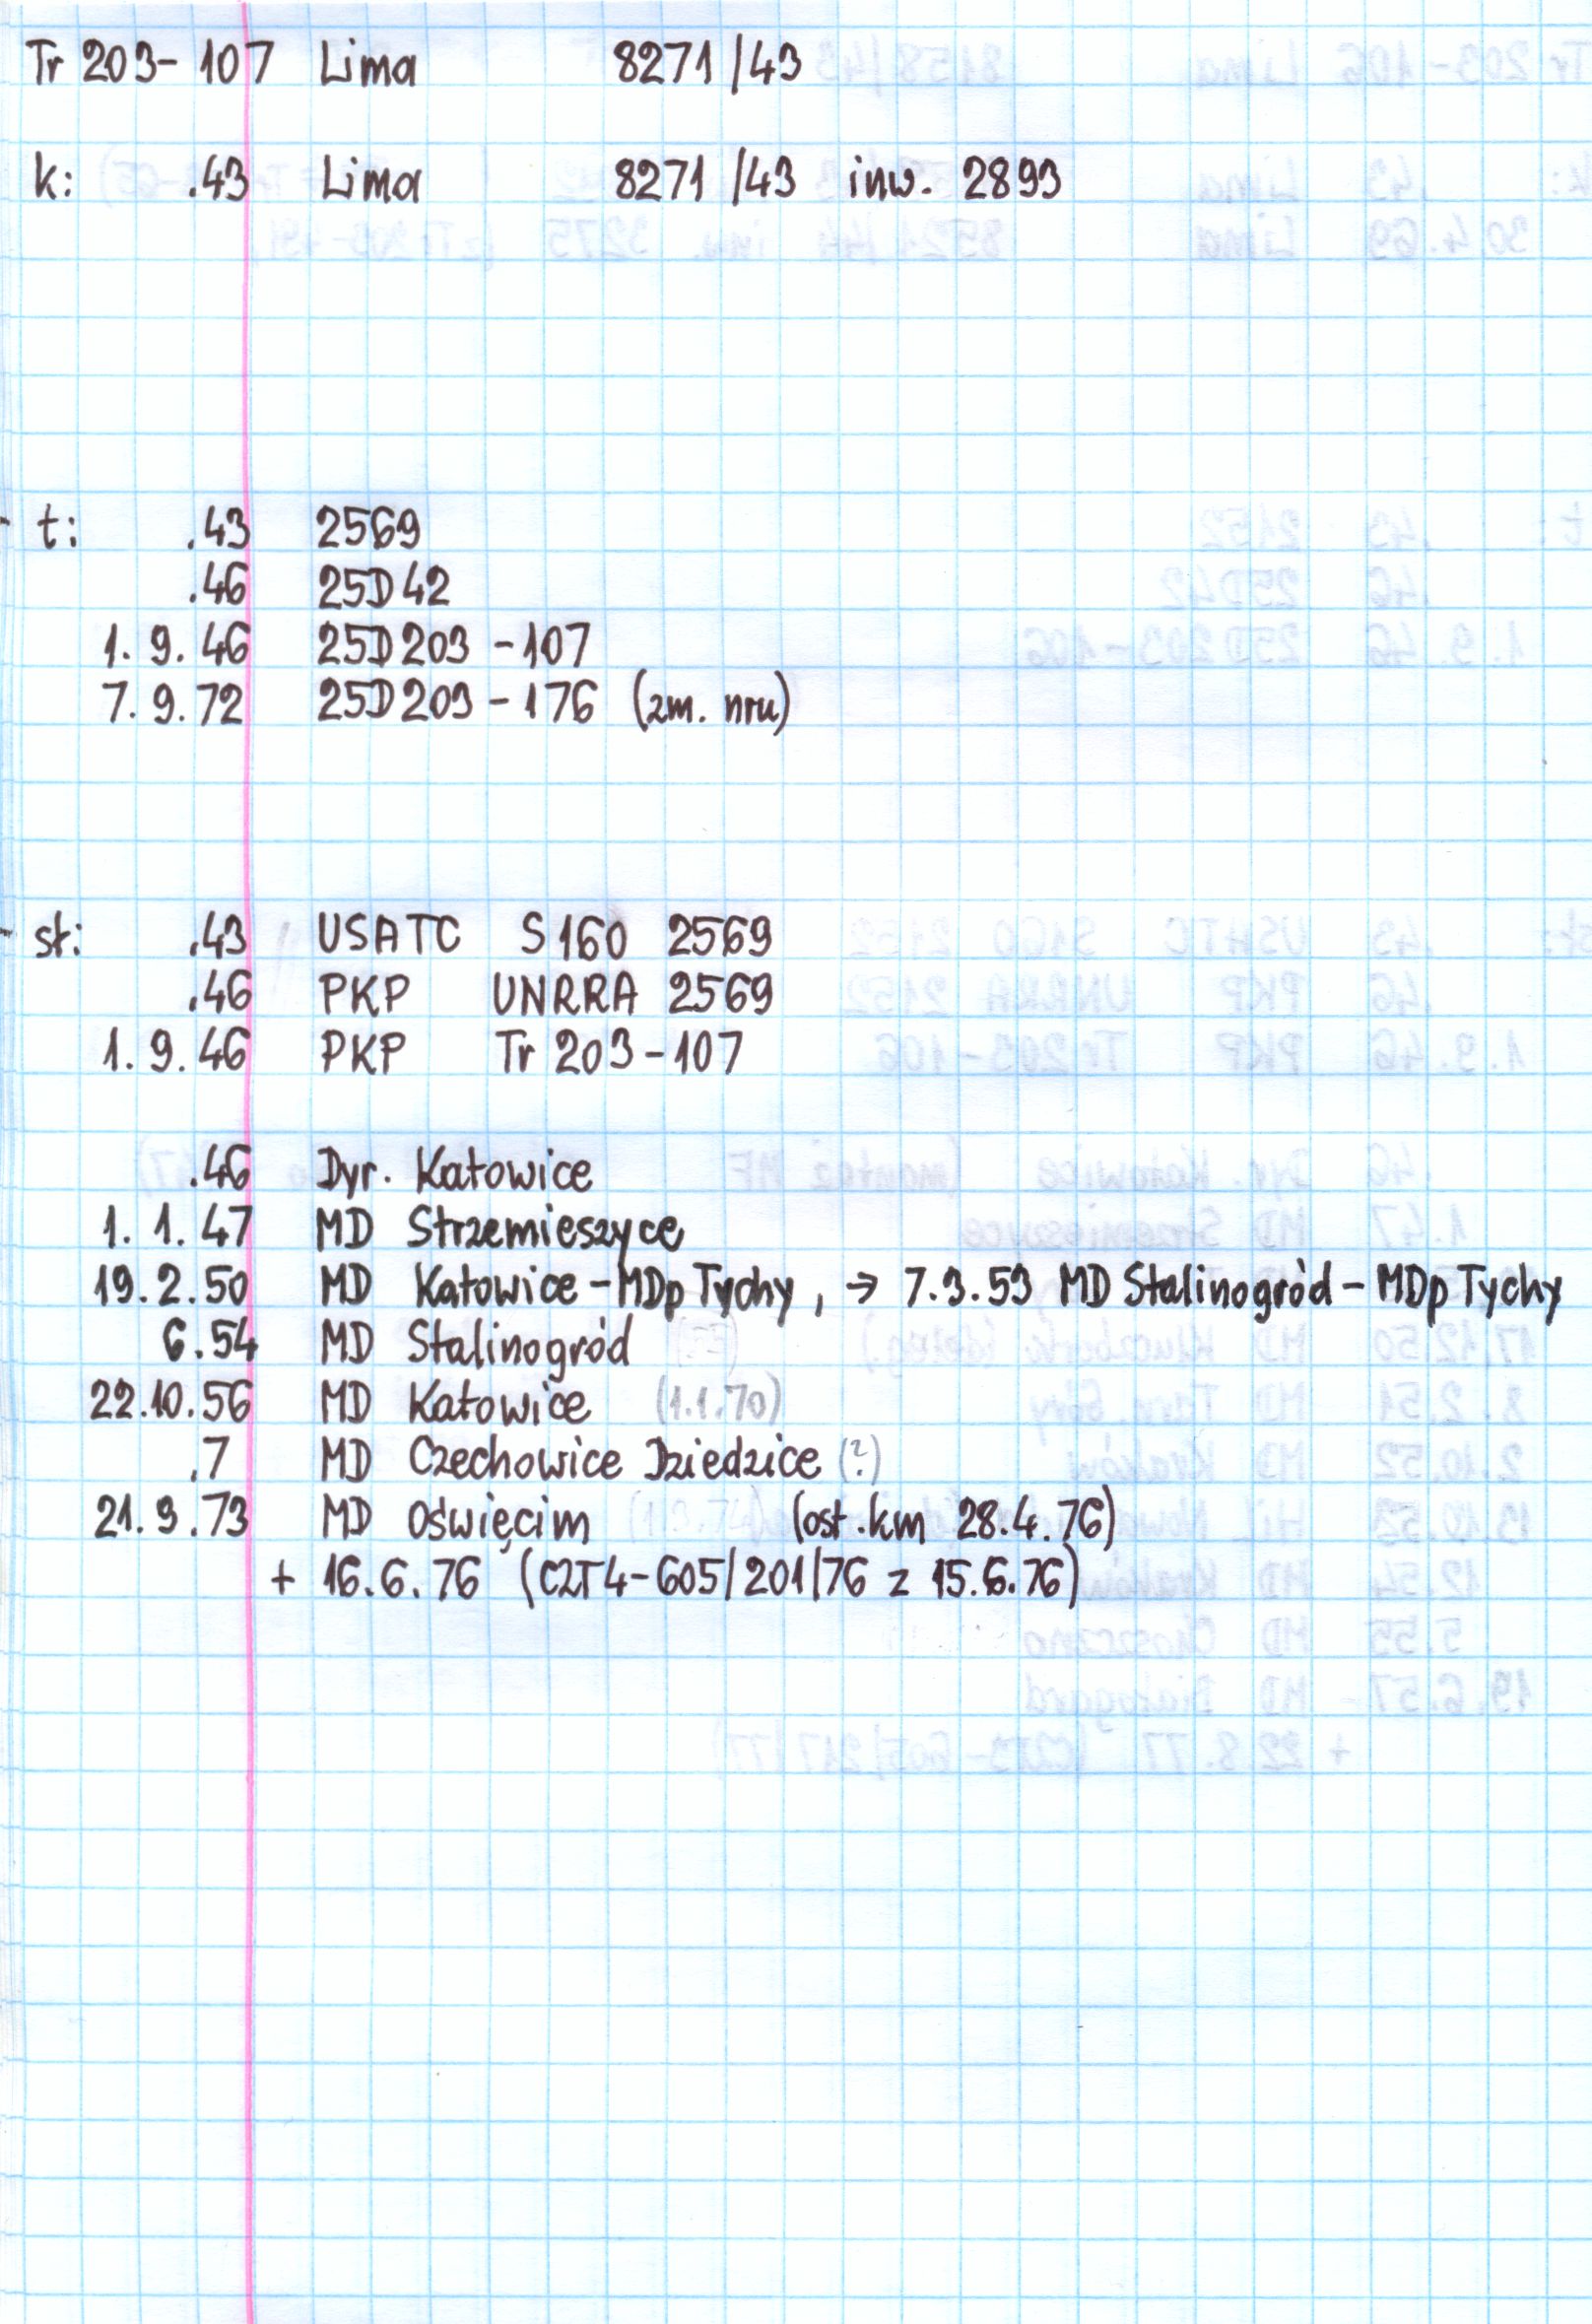 Tr 203-107 Lima 8271/43
k: .43 Lima 8271/43 inw. 2893
t: .43 2569
.46 25D42
1.9.46 25D203-107
7.9.72 25D203-176 (zm. nru)
st: .43 USATC S160 2569
.46 PKP UNRRA 2569
1.9.46 PKP Tr 203-107
.46 Dyr. Katowice
1.1.47 MD Strzemieszyce
19.2.50 MD Katowice-MDp Tychy, → 7.3.53 MD Stalinogród-MDp Tychy
6.54 MD Stalinogród
22.10.56 MD Katowice (1.1.70)
.7 MD Czechowice Dziedzice (?)
21.9.73 MD Oświęcim (ost. km 28.4.76)
+ 16.6.76 (CZT4-605/201/76 z 15.6.76)